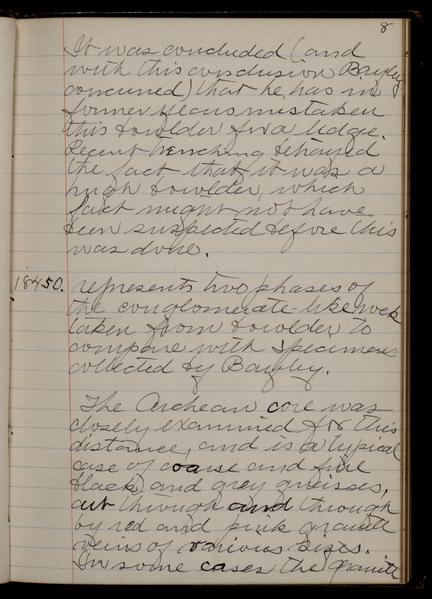 8
It was concluded (and
with this conclusion Bayley
concurred) that he has in
former years mistaken
this bowlder for a ledge.
Recent trenching betrayed
the fact that it was a
hugh bowlder, which
fact might not have
been suspected before this
was done.
18450. represents two phases of
the conglomerate like rock
taken from bowlder to
compare with specimens
collected by Bayley.
The Archean core was
closely examined for this
distance, and is a typical
case of coarse and fine
black and grey gneisses,
cut through and through
by red and pink granite
veins of various sizes.
In some cases the granite
8